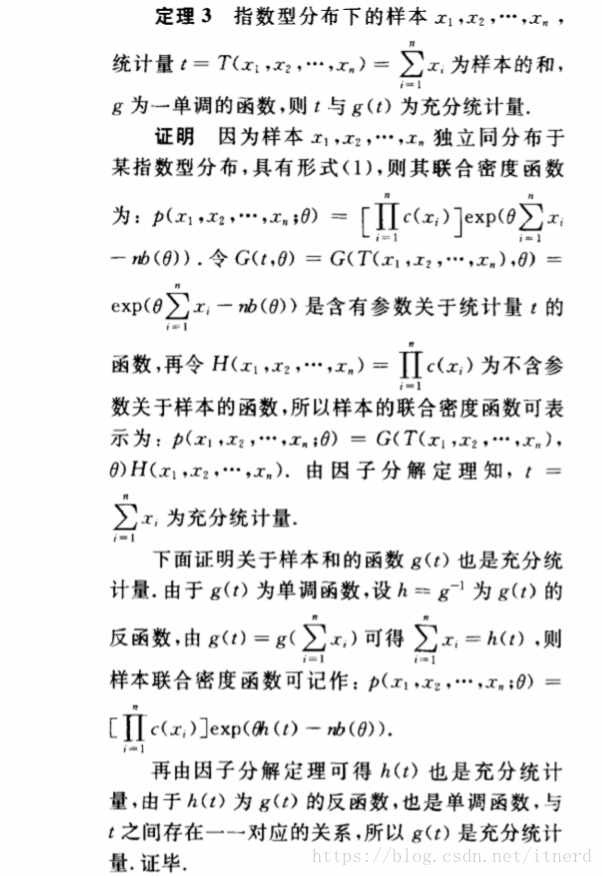 定理 3 指数型分布下的样本 x₁,x₂,⋯,xₙ,
统计量 t = T(x₁,x₂,⋯,xₙ) = ∑ᵢ₌₁ⁿ xᵢ 为样本的和,
g 为一单调的函数,则 t 与 g(t) 为充分统计量.
证明 因为样本 x₁,x₂,⋯,xₙ 独立同分布于
某指数型分布,具有形式(1),则其联合密度函数
为: p(x₁,x₂,⋯,xₙ;θ) = [∏ᵢ₌₁ⁿ c(xᵢ)]exp(θ∑ᵢ₌₁ⁿ xᵢ
− nb(θ)).令 G(t,θ) = G(T(x₁,x₂,⋯,xₙ),θ) =
exp(θ∑ᵢ₌₁ⁿ xᵢ − nb(θ)) 是含有参数关于统计量 t 的
函数,再令 H(x₁,x₂,⋯,xₙ) = ∏ᵢ₌₁ⁿ c(xᵢ) 为不含参
数关于样本的函数,所以样本的联合密度函数可表
示为: p(x₁,x₂,⋯,xₙ;θ) = G(T(x₁,x₂,⋯,xₙ),
θ)H(x₁,x₂,⋯,xₙ). 由因子分解定理知, t =
∑ᵢ₌₁ⁿ xᵢ 为充分统计量.
下面证明关于样本和的函数 g(t) 也是充分统
计量.由于 g(t) 为单调函数,设 h = g⁻¹ 为 g(t) 的
反函数,由 g(t) = g(∑ᵢ₌₁ⁿ xᵢ) 可得 ∑ᵢ₌₁ⁿ xᵢ = h(t) ,则
样本联合密度函数可记作: p(x₁,x₂,⋯,xₙ;θ) =
[∏ᵢ₌₁ⁿ c(xᵢ)]exp(θh(t) − nb(θ)).
再由因子分解定理可得 h(t) 也是充分统计
量,由于 h(t) 为 g(t) 的反函数,也是单调函数,与
t 之间存在一一对应的关系,所以 g(t) 是充分统计
量.证毕.
https://blog.csdn.net/itnerd